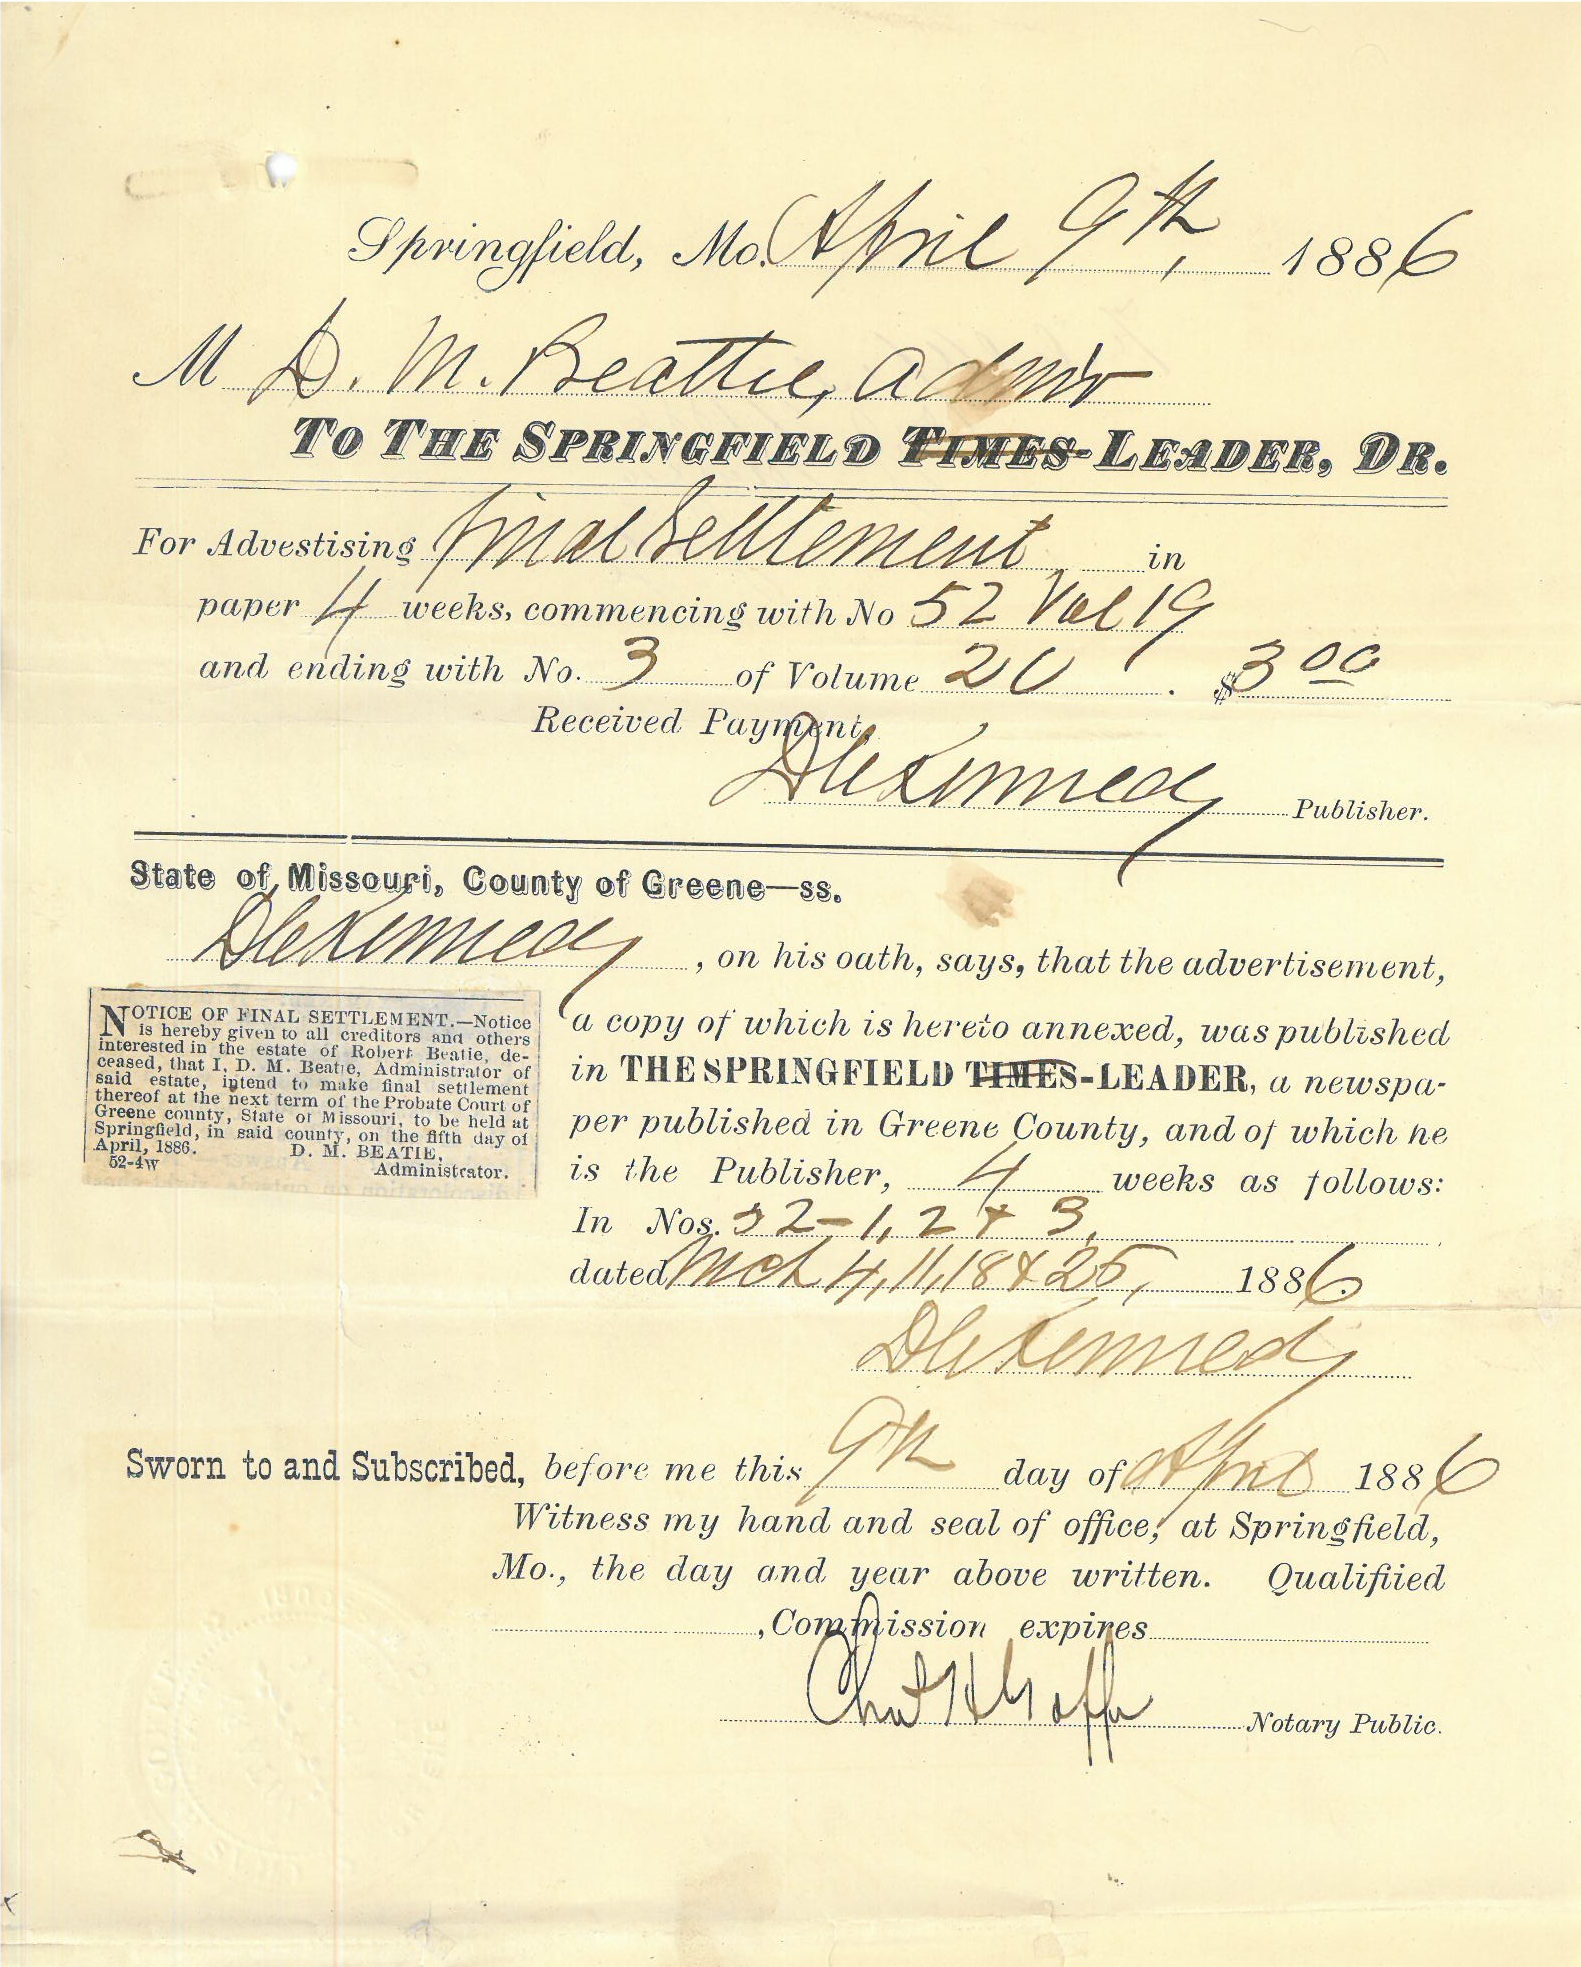 Springfield, Mo. April 9th, 1886
M D. M. Beattie, Admr
TO THE SPRINGFIELD TIMES-LEADER, DR.
For Advestising final Settlement in
paper 4 weeks, commencing with No 52 Vol 19
and ending with No. 3 of Volume 20. $3 00
Received Payment,
D C Kennedy Publisher.
State of Missouri, County of Greene—ss.
D C Kennedy, on his oath, says, that the advertisement,
a copy of which is hereto annexed, was published
in THE SPRINGFIELD TIMES-LEADER, a newspa-
per published in Greene County, and of which he
is the Publisher, 4 weeks as follows:
In Nos. 52-1, 2 & 3,
dated Mch 4, 11, 18 & 25, 1886.
D C Kennedy
NOTICE OF FINAL SETTLEMENT.—Notice
is hereby given to all creditors and others
interested in the estate of Robert Beatie, de-
ceased, that I, D. M. Beatie, Administrator of
said estate, intend to make final settlement
thereof at the next term of the Probate Court of
Greene county, State of Missouri, to be held at
Springfield, in said county, on the fifth day of
April, 1886. D. M. BEATIE,
52-4w Administrator.
Sworn to and Subscribed, before me this 9th day of April 1886
Witness my hand and seal of office, at Springfield,
Mo., the day and year above written. Qualifiied
, Commission expires
Notary Public.